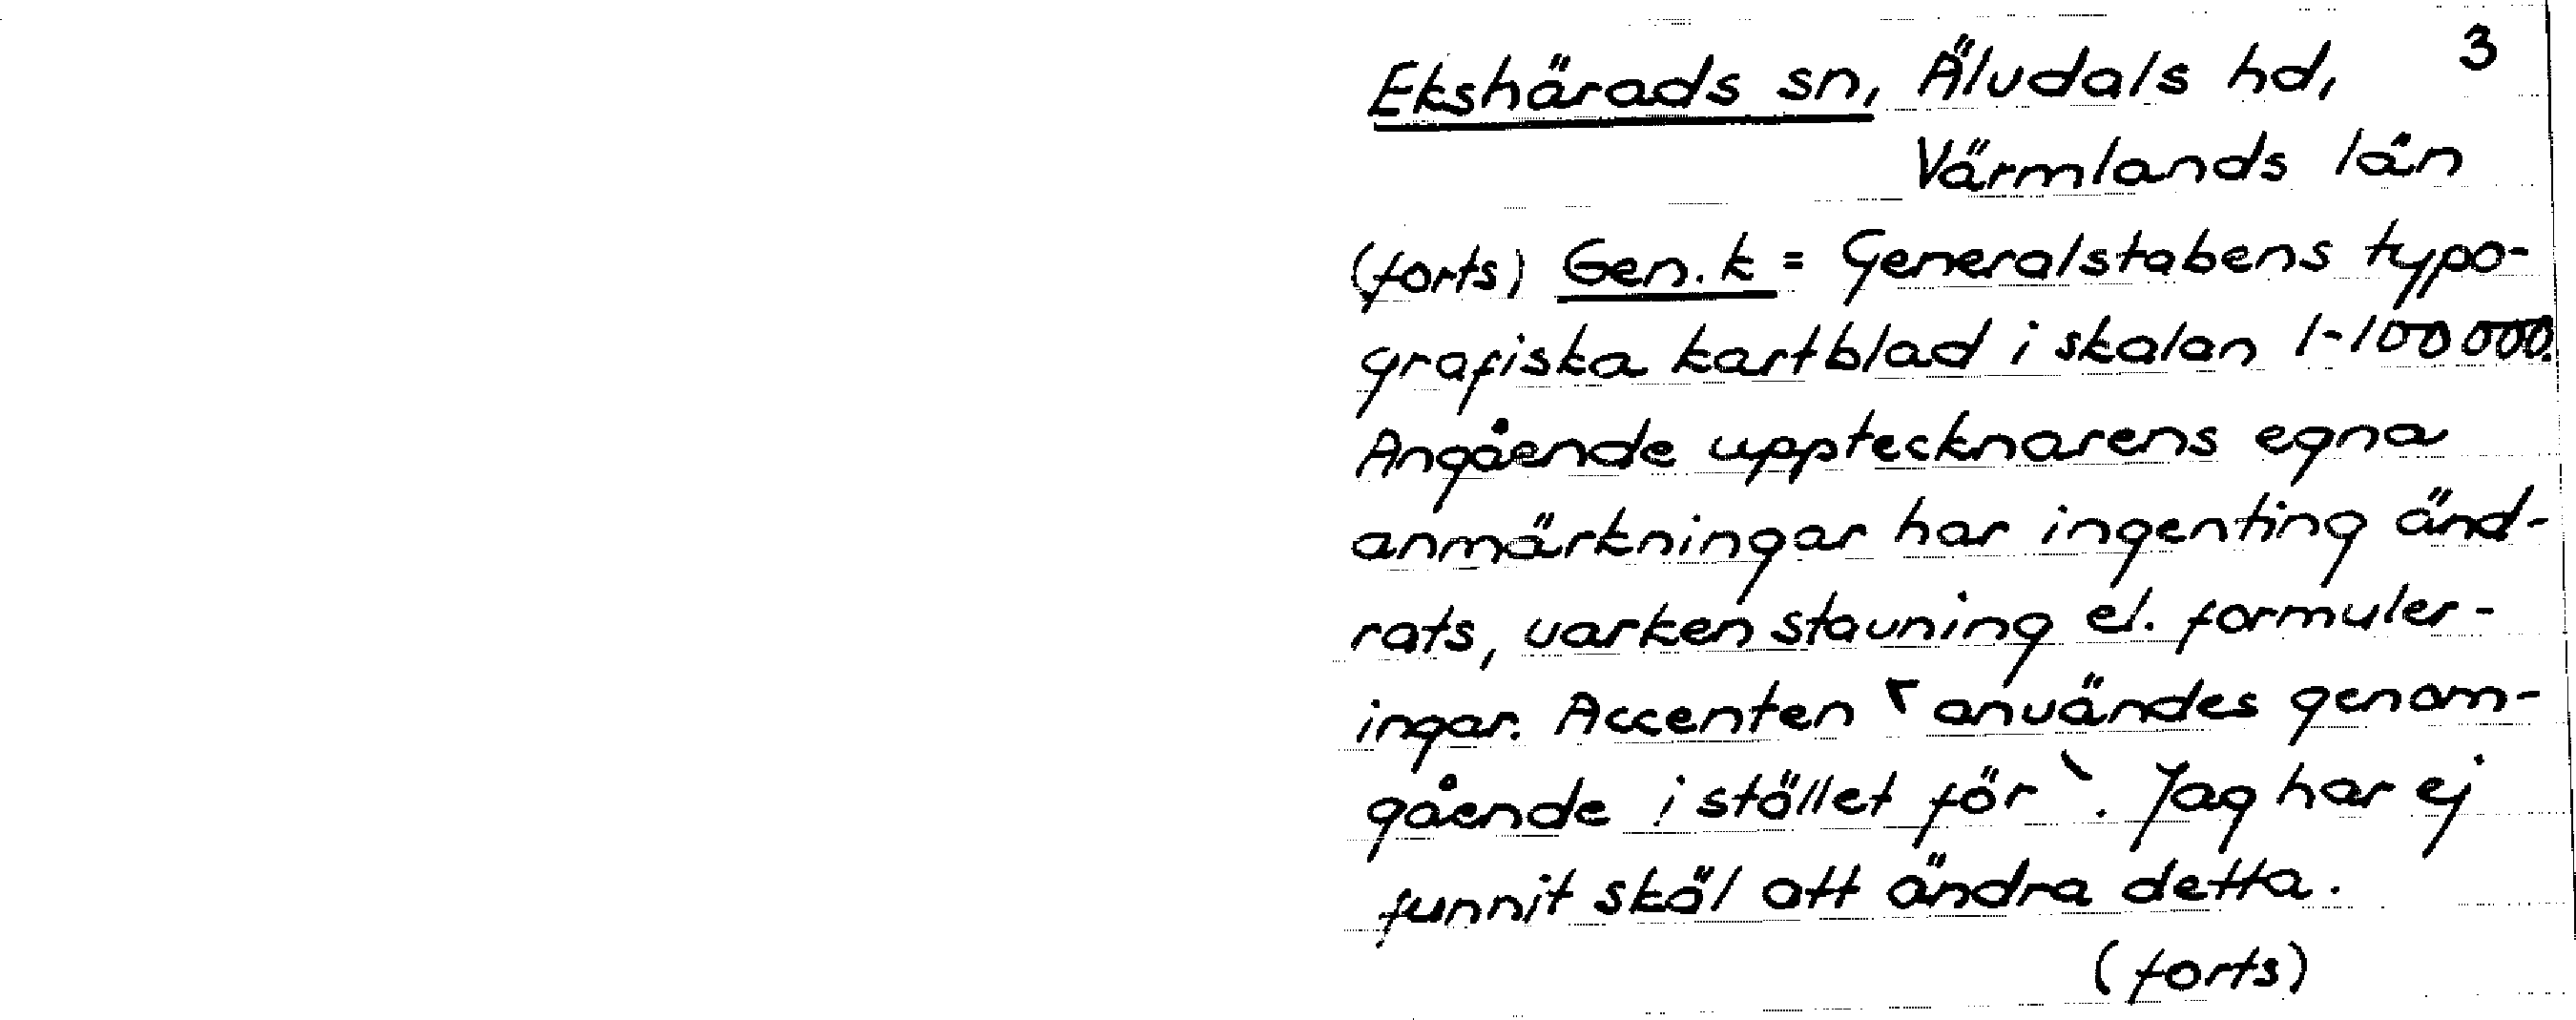 Ekshärads sn, Älvdals hd, 3
Värmlands län
(forts) Gen. k = Generalstabens typo-
grafiska kartblad i skalan 1-100 000.
Angående upptecknarens egna
anmärkningar har ingenting änd-
rats, varken stavning el. formuler-
ingar. Accenten ❜ användes genom-
gående i stället för `. Jag har ej
funnit skäl att ändra detta.
(forts)